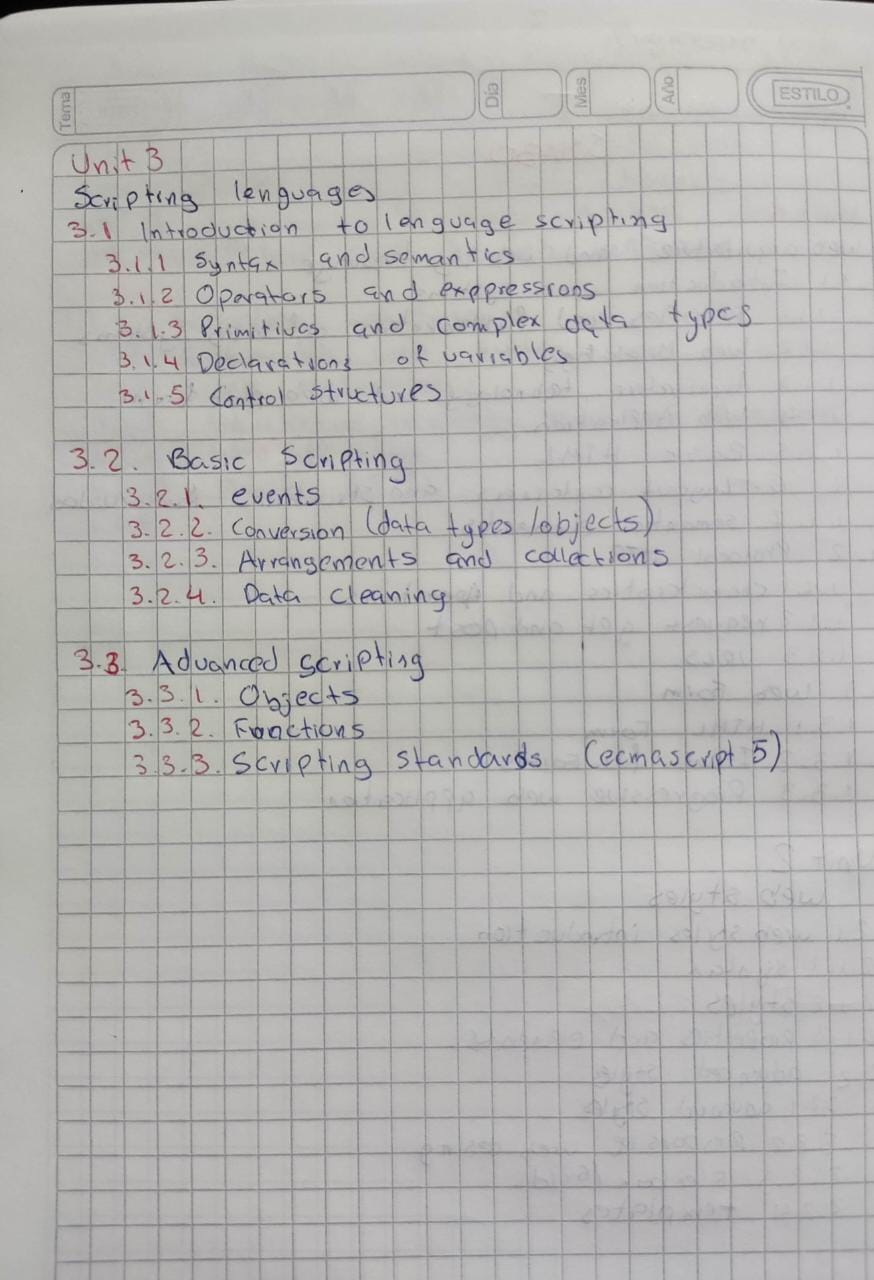 Tema
Día
Mes
Año
ESTILO
Unit 3
Scripting lenguages
3.1 Introduction to lenguage scripting
3.1.1 Syntax and semantics
3.1.2 Operators and exppressions
3.1.3 Primitives and complex data types
3.1.4 Declarations of variables
3.1.5 Control structures
3.2. Basic Scripting
3.2.1. events
3.2.2. Conversion (data types /objects)
3.2.3. Arrangements and collections
3.2.4. Data cleaning
3.3. Advanced scripting
3.3.1. Objects
3.3.2. Functions
3.3.3. Scripting standards (ecmascript 5)